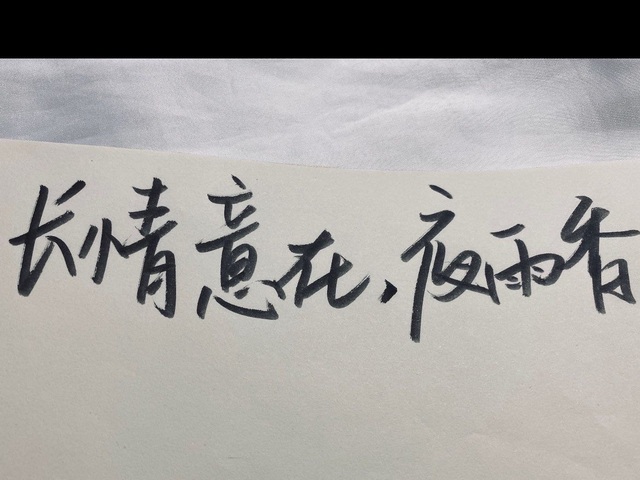 长情意在,夜雨香